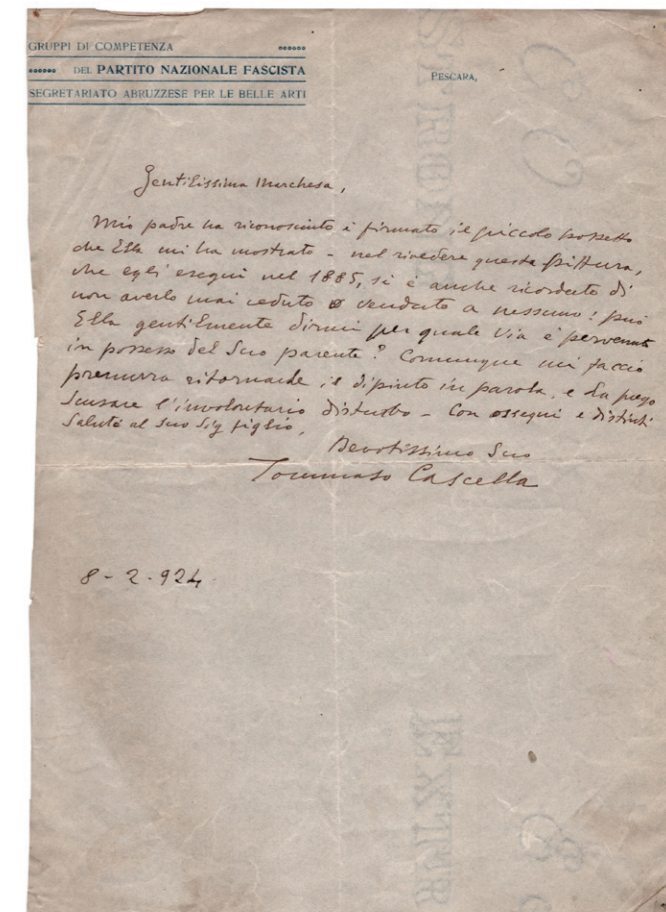 GRUPPI DI COMPETENZA
DEL PARTITO NAZIONALE FASCISTA
SEGRETARIATO ABRUZZESE PER LE BELLE ARTI
PESCARA,
Gentilissima Marchesa,
Mio padre ha riconosciuto i firmato il piccolo bozzetto
che Ella mi ha mostrato - nel rivedere questa pittura,
che egli eseguì nel 1885, si è anche ricordato di
non averlo mai ceduto o venduto a nessuno! può
Ella gentilmente dirmi per quale via è pervenuto
in possesso del Suo parente? Comunque mi faccio
premura ritornarle il dipinto in parola, e La prego
scusare l'involontario disturbo - Con ossequi e distinti
saluti al suo Sig figlio,
Devotissimo Suo
Tommaso Cascella
8 - 2 - 924